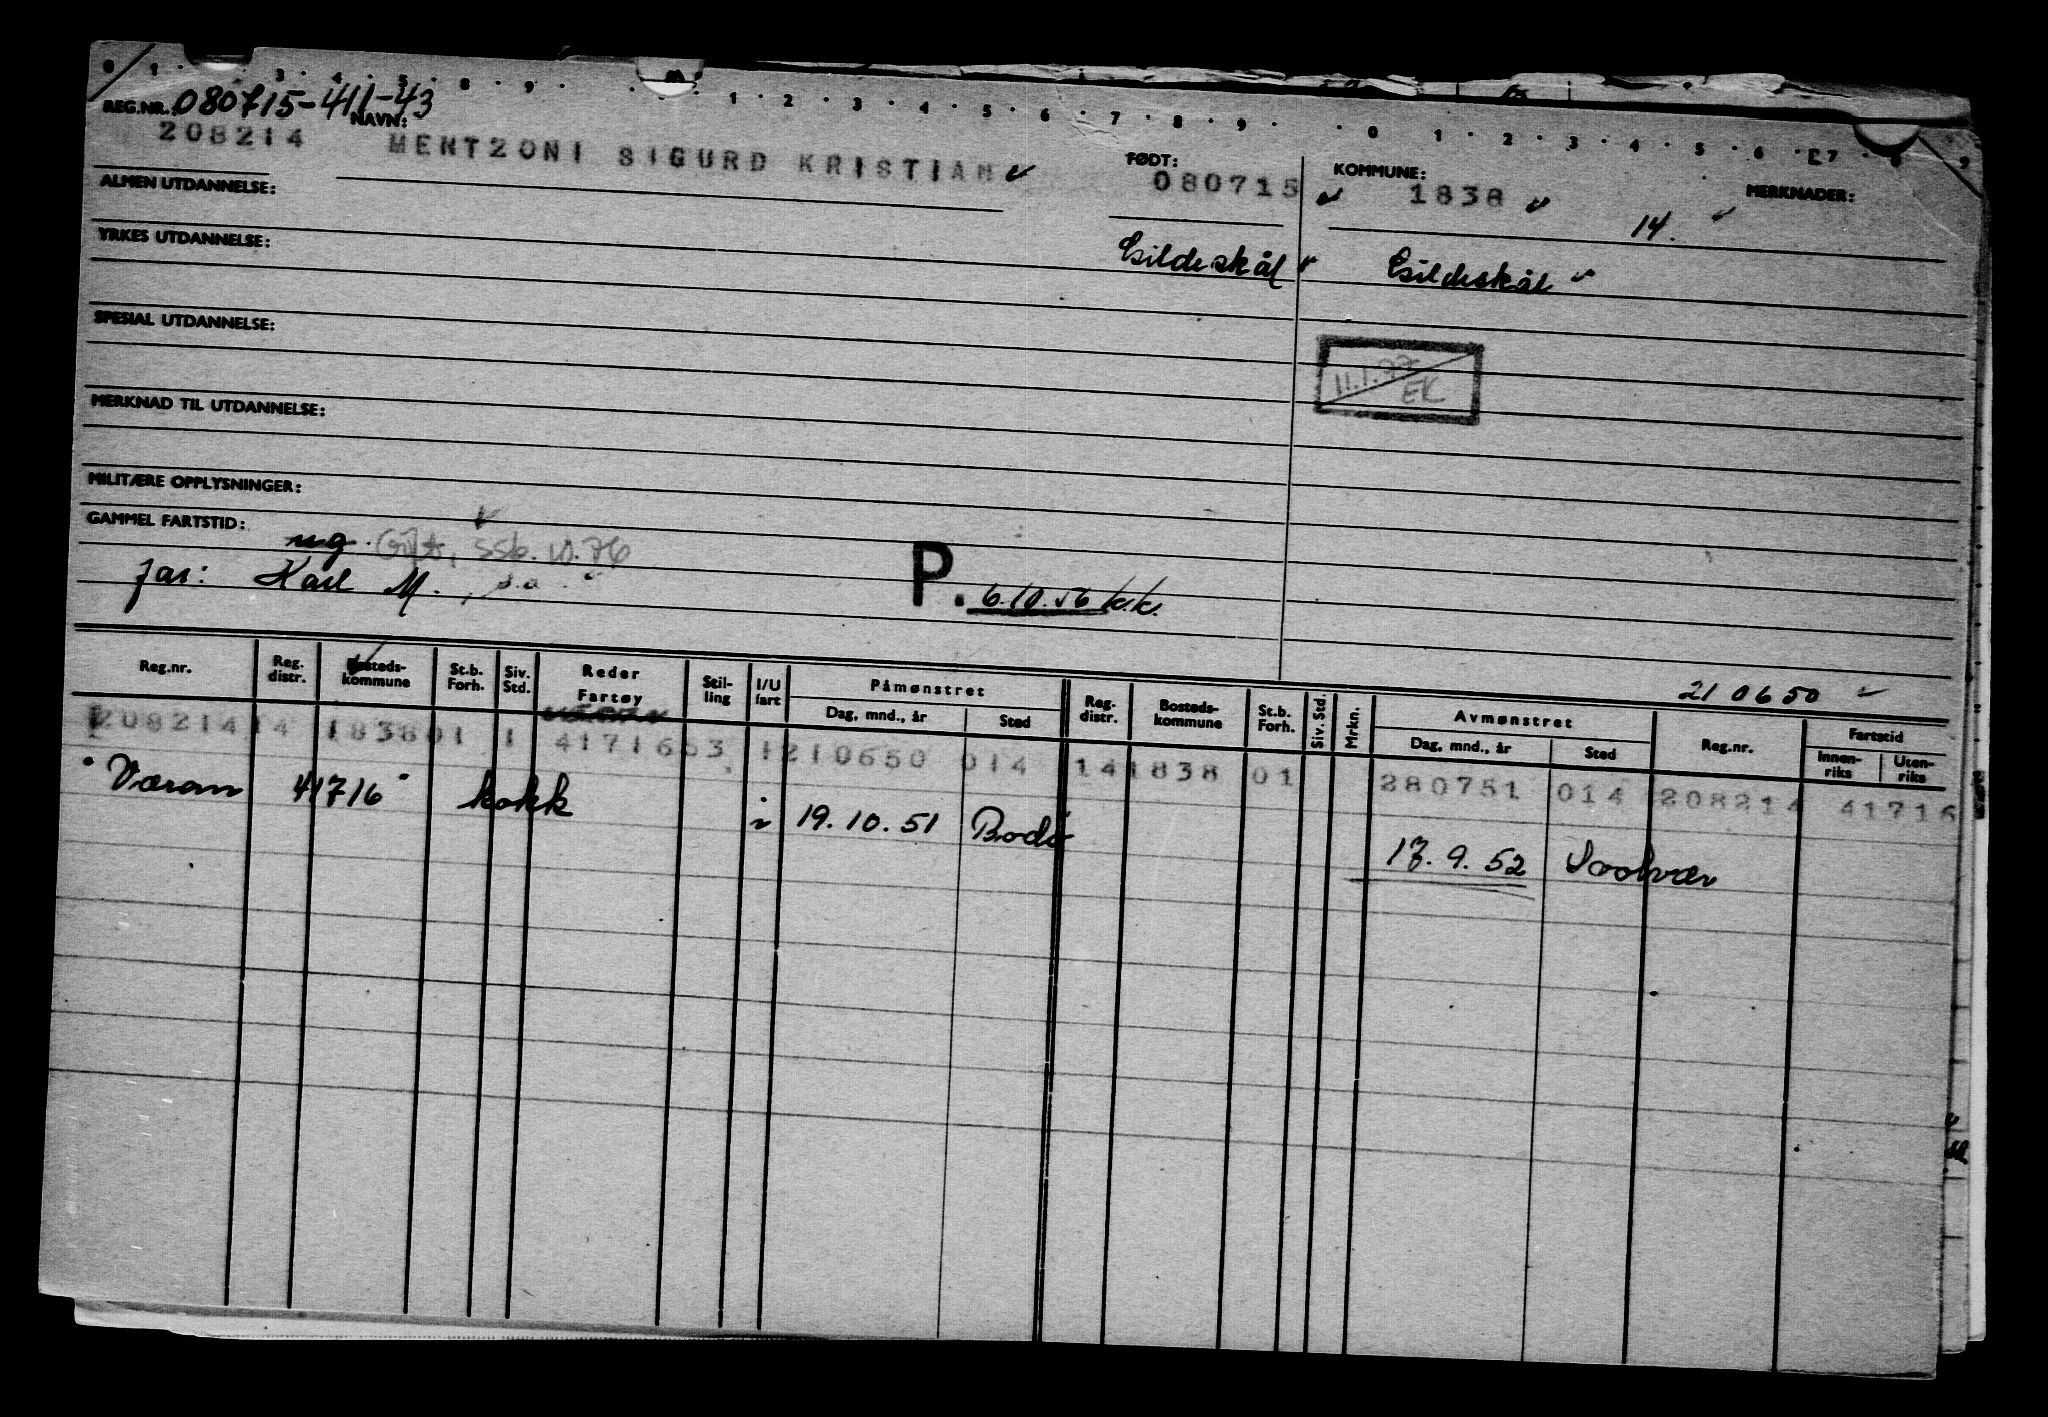 0 1 · 3 · 4 · 5 · 8 · 9 · · 1 · 2 · 3 · 4 · 5 · 6 · 7 · 8 · 9 · · 0 1 · 2 · 3 · 4 · 5 · 6 · 7 8 9
REG.NR.: 080715-411-43
208214 NAVN: MENTZONI SIGURD KRISTIAN
FØDT: 080715
KOMMUNE: 1838
MERKNADER:
14.
ALMEN UTDANNELSE:
YRKES UTDANNELSE:
Gildeskål
Gildeskål
SPESIAL UTDANNELSE:
11.1.73
EK
MERKNAD TIL UTDANNELSE:
MILITÆRE OPPLYSNINGER:
GAMMEL FARTSTID:
ug. Gift, SSB. 10.76
far: Karl M., s.a.
P. 6.10.56 k.k.
21 06 50
Reg.nr. Reg. distr. Bosteds-kommune St.b. Forh. Siv. Std. Reder Fartøy Stil-ling I/U fart Påmønstret Dag, mnd., år Sted Reg. distr. Bosteds-kommune St.b. Forh. Siv. Std. Mrkn. Avmønstret Dag, mnd., år Sted Reg.nr. Fartstid Innen-riks Uten-riks
208214 14 1838 01 1 41716 53 1 210650 014 14 1838 01 280751 014 208214 41716
Væran 41716 kokk i 19.10.51 Bodø 17.9.52 Svolvær